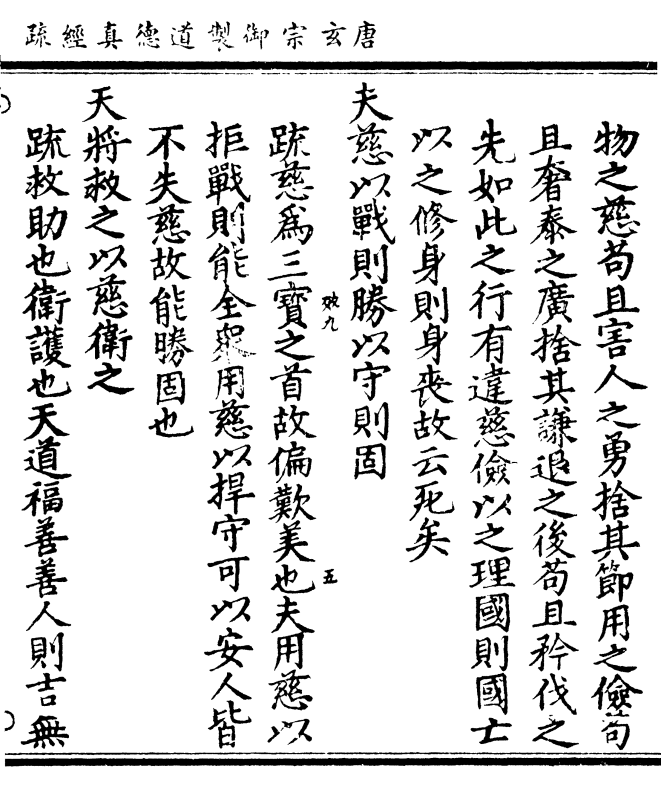 唐玄宗御製道德真經疏
物之慈苟且害人之勇捨其節用之儉苟
且奢泰之廣捨其謙退之後苟且矜伐之
先如此之行有違慈儉以之理國則國亡
以之修身則身喪故云死矣
夫慈以戰則勝以守則固
效九
疏慈爲三寶之首故偏歎美也夫用慈以
五
拒戰則能全衆用慈以捍守可以安人皆
不失慈故能勝固也
天將救之以慈衛之
疏救助也衛護也天道福善善人則吉無